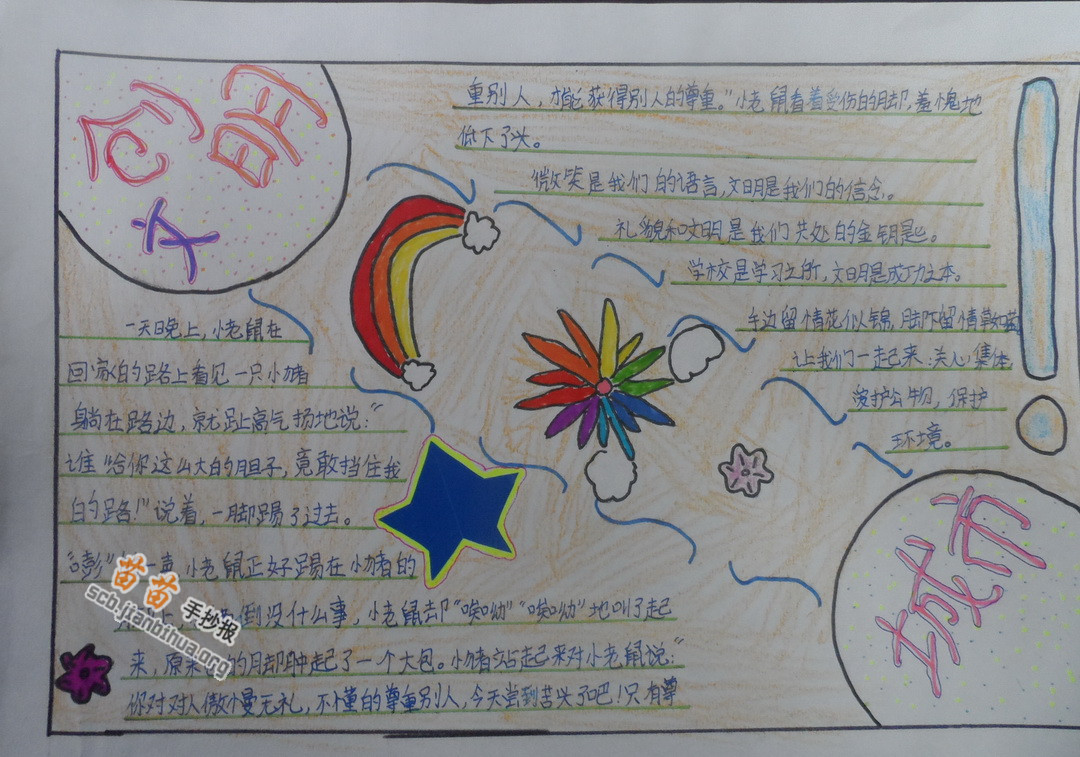 创文明
城市
一天晚上，小老鼠在
回家的路上看见一只小猪
躺在路边，就趾高气扬地说：“
谁“给你这么大的胆子，竟敢挡住我
的路！”说着，一脚踢了过去。
“嘭” 声 小老鼠正好踢在小猪的
上 倒没什么事，小老鼠却“唉呦”“唉呦”地叫了起
来，原来 的脚肿起了一个大包。小猪站起来对小老鼠说：“
你对对人傲慢无礼，不懂的尊重别人，今天尝到苦头了吧！只有尊
重别人，才能获得别人的尊重。”小老鼠看着受伤的脚，羞愧地
低下了头。
微笑是我们的语言，文明是我们的信念。
礼貌和文明是我们共处的金钥匙。
学校是学习之所，文明是成功之本。
手边留情花似锦，脚下留情草如茵
让我们一走起来：关心集体
爱护公物，保护
环境。
苗苗手抄报
scb.jianbihua.org